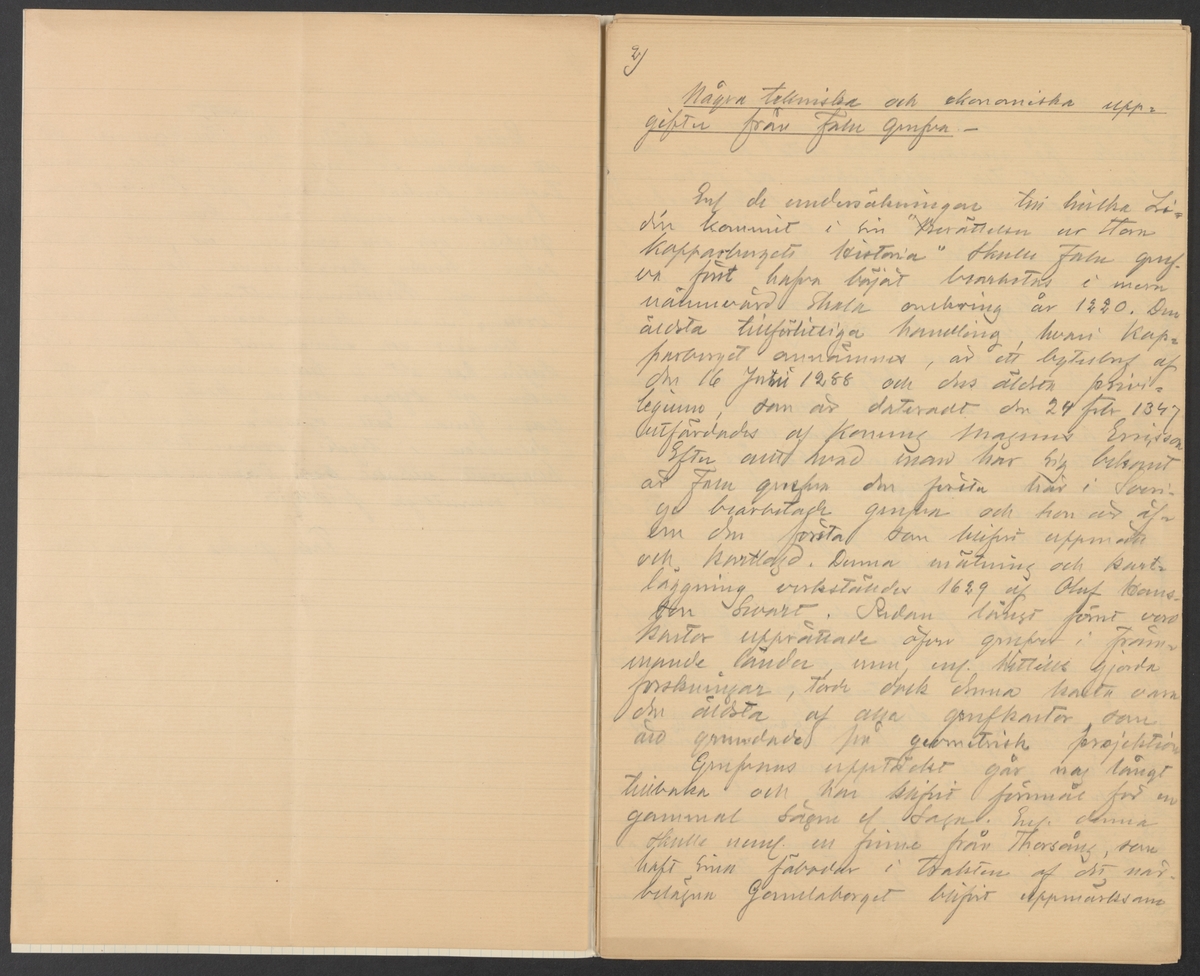 2)
Några tekniska och ekonomiska upp=
gifter från Falu Grufva –
Enl de undersökningar till hvilka Li=
dén kommit i sin "Berättelse om Stora
Kopparbergets Historia" skulle Falu gruf-
va först hafva börjat bearbetas i mera
nämnevärd skala omkring år 1220. Den
äldsta tillförlitliga handling, hvari Kop=
parberget omnämnes, är ett bytesbref af
den 16 Juni 1288 och dess äldsta privi=
legium, som är dateradt den 24 febr 1347
utfärdades af Konung Magnus Ericsson
Efter allt hvad man har sig bekant
är Falu grufva den första här i Sveri=
ge bearbetade grufva och hon är äf=
ven den första som blifvit uppmätt
och kartlagd. Denna mätning och kart=
läggning verkställdes 1629 af Oluf Hans-
son Svart. Redan långt förut voro
kartor upprättade öfver grufvor i främ-
mande länder, men, enl. hittills gjorda
forskningar, torde dock denna karta vara
den äldsta af alla grufkartor som
äro grundade på geometrisk projektion
Grufvans upptäckt går nog långt
tillbaka och har blifvit föremål för en
gammal sägen el saga. Enl. denna
skulle neml. en finne från Thorsång, som
haft sina fäbodar i trakten af det när-
belägna Gamlaberget blifvit uppmärksam